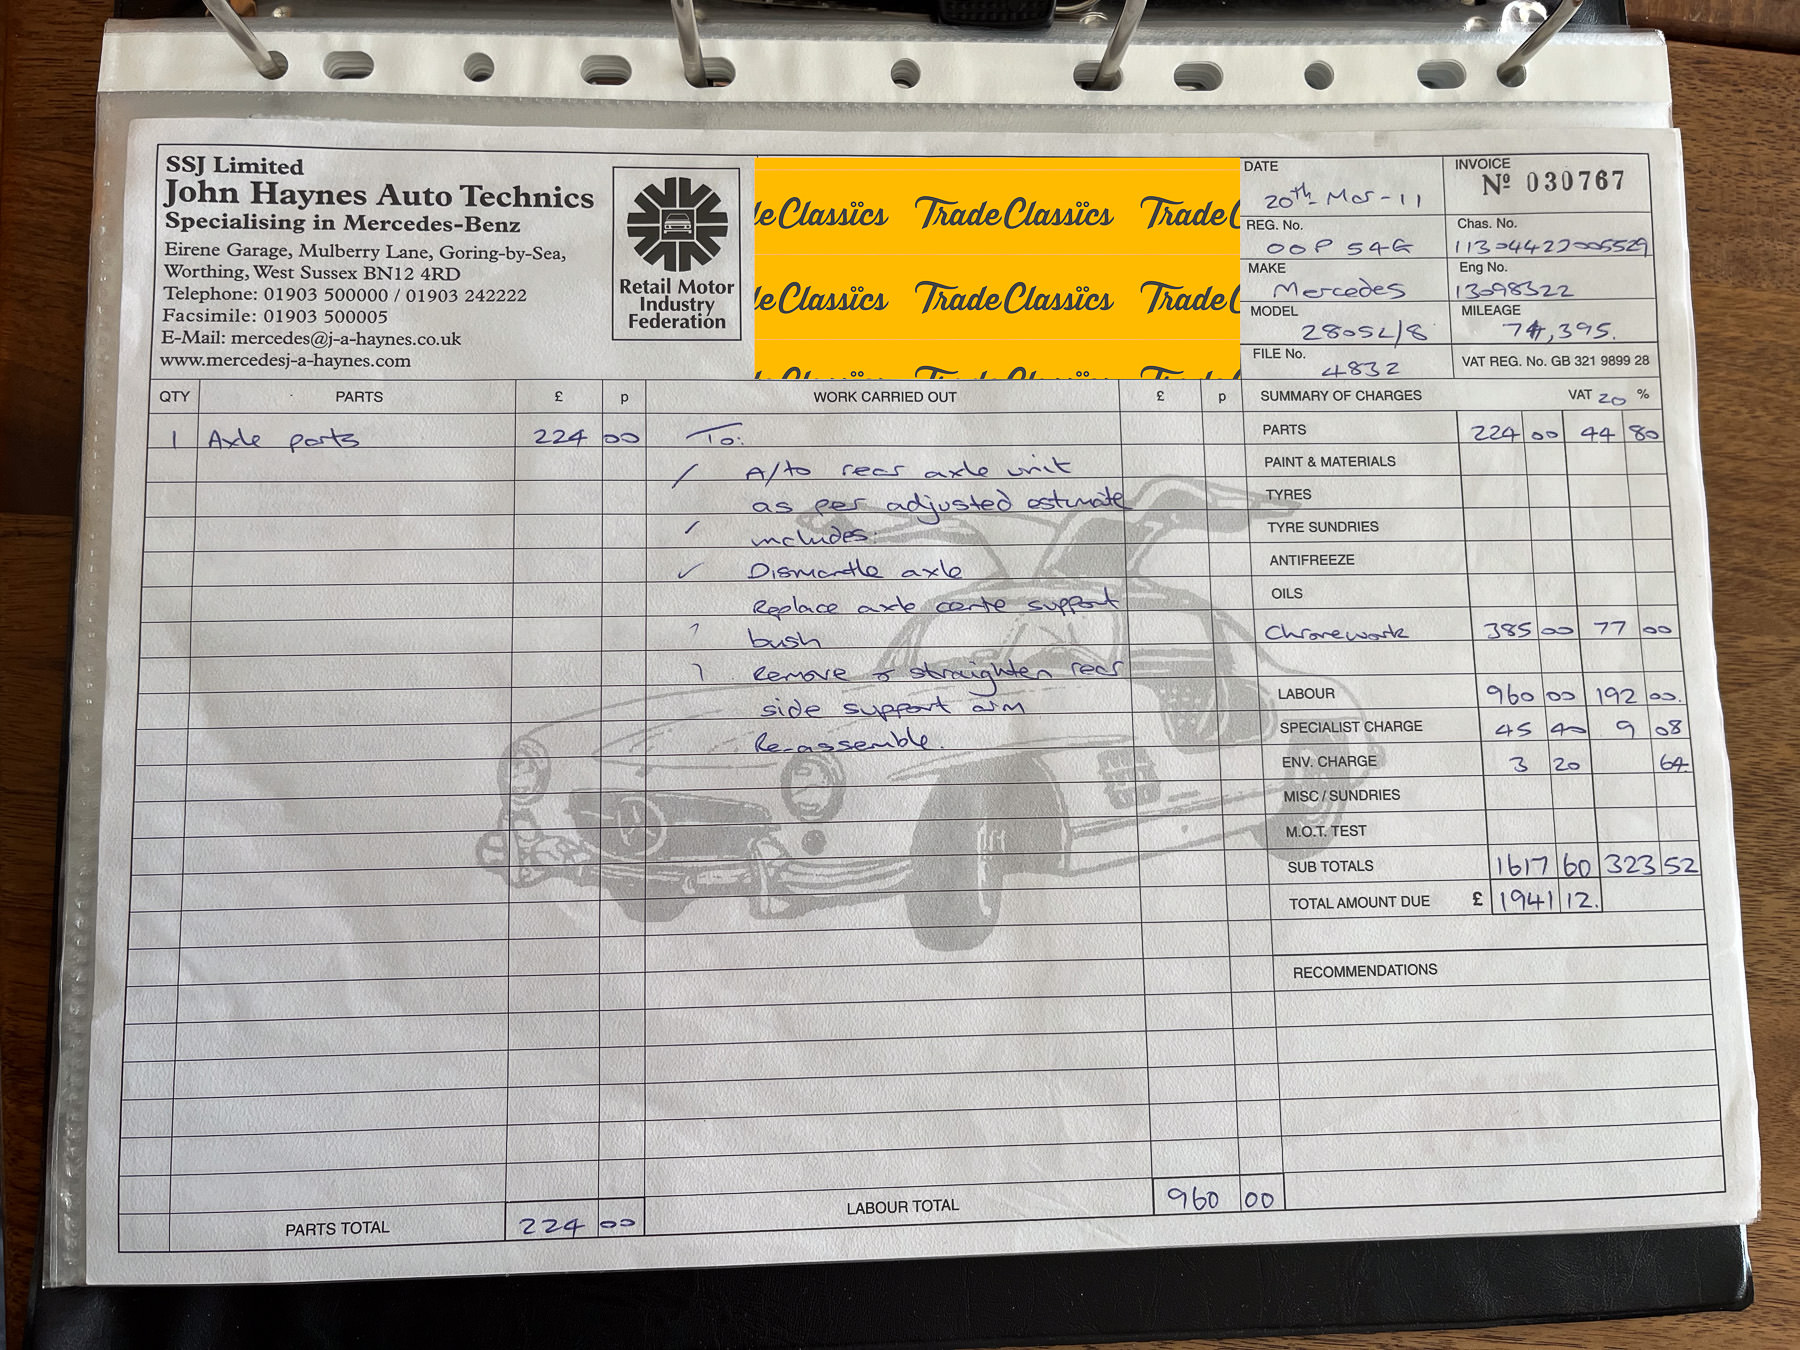 SSJ Limited
John Haynes Auto Technics
Specialising in Mercedes-Benz
Eirene Garage, Mulberry Lane, Goring-by-Sea,
Worthing, West Sussex BN12 4RD
Telephone: 01903 500000 / 01903 242222
Facsimile: 01903 500005
E-Mail: mercedes@j-a-haynes.co.uk
www.mercedesj-a-haynes.com
Retail Motor
Industry
Federation
le Classics Trade Classics Trade C
le Classics Trade Classics Trade C
DATE 20th Mar-11
INVOICE Nº 030767
REG. No. OOP 54G
Chas. No. 11304422005529
MAKE Mercedes
Eng No. 13098322
MODEL 280SL/8
MILEAGE 74,395.
FILE No. 4832
VAT REG. No. GB 321 9899 28
QTY PARTS £ p WORK CARRIED OUT £ p SUMMARY OF CHARGES VAT 20 %
1 Axle parts 224 00
To:
A/to rear axle unit
as per adjusted estimate
includes:
Dismantle axle
Replace axle centre support
bush
Remove & straighten rear
side support arm
Re-assemble.
PARTS 224 00 44 80
PAINT & MATERIALS
TYRES
TYRE SUNDRIES
ANTIFREEZE
OILS
Chromework 385 00 77 00
LABOUR 960 00 192 00.
SPECIALIST CHARGE 45 40 9 08
ENV. CHARGE 3 20 64.
MISC / SUNDRIES
M.O.T. TEST
SUB TOTALS 1617 60 323 52
TOTAL AMOUNT DUE £ 1941 12.
RECOMMENDATIONS
PARTS TOTAL 224 00
LABOUR TOTAL 960 00